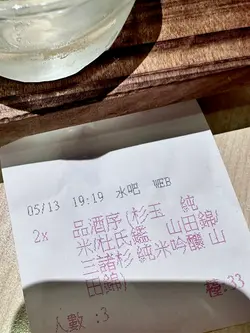 05/13 19:19 水吧 WEB
2x 品酒序(杉玉 純
米/杜氏鑑 山田錦/
三諸杉 純米吟釀 山
田錦)
人數:3 檯:33